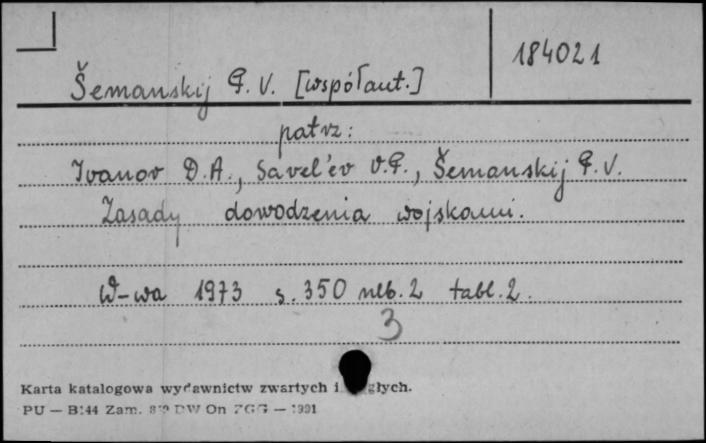 184021
Šemanskij P. V. [współaut.]
patrz:
Ivanov D.A., Savel'ev V.P., Šemanskij P.V.
Zasady dowodzenia wojskami.
W-wa 1973 s. 350 nlb. 2 tabl. 2.
3
Karta katalogowa wydawnictw zwartych i
PU — B144 Zam. DW On ZGG —